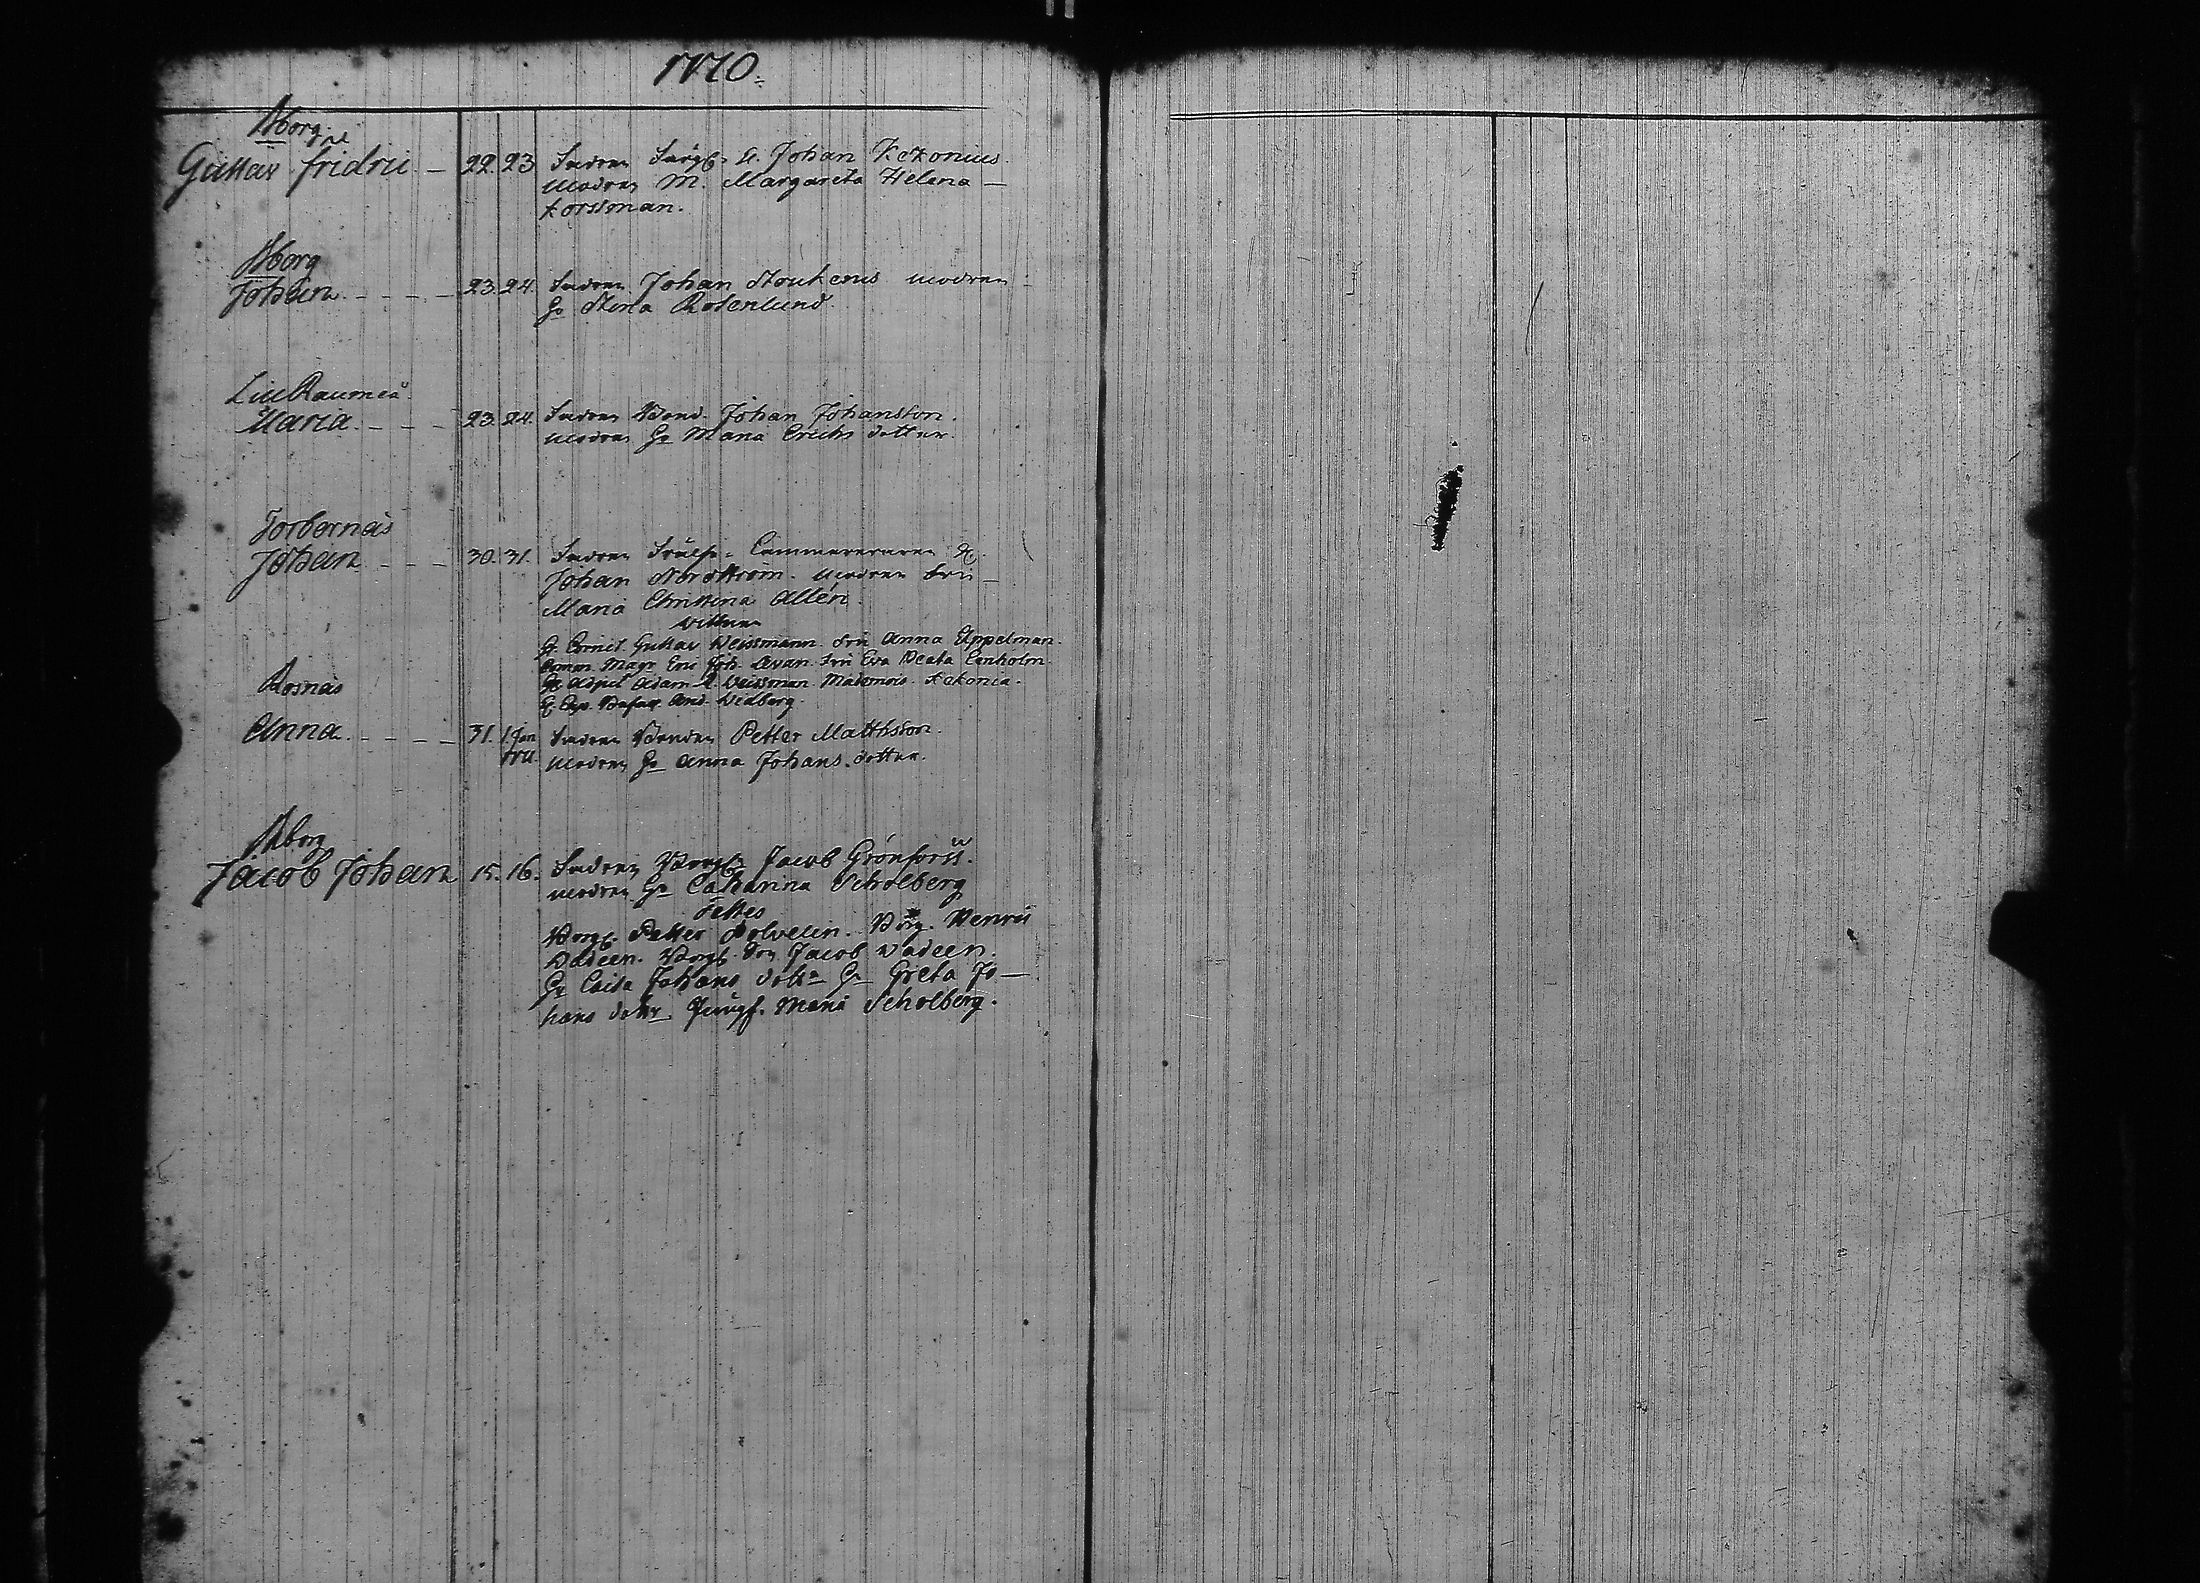 1770.
Aborg
Gustav fridric - 22. 23 Fadren Johan Kekonius.
modren M. Margareta Helena -
Forssman.
Aborg
Johan - - - - 23. 24. Fadren Johan modren
Hu Stina Rosenlund.
Lill Raumeå
Maria - - - 23. 24. Fadren Bond. Johan Johansson.
modren Hu Maria Erichs dotter.
Torbornäs
Johan - - - 30. 31. Fadren Cammereraren H.
Johan Nordström. modren fru -
Maria Christina Allén.
Vittnen
H. Cornet. Gustav Weissmann. fru Anna Eppelman.
Eric Joh. fru Eva Beata Enholm.
Adam Weissman.
And. Widberg.
Rosnäs
Anna - - - - 31. 1. Jan Fadren Bonden Petter Matthsson.
1771. modren Hu Anna Johans. dotter.
Aborg
Jacob Johan 15. 16. Fadren Borg. Jacob Grönforss.
modren Hu Catharina Scholberg
Testes
Borg. Petter Borg. Henric
Wadeen. Borg. Son Jacob Wadeen.
Hu Caisa Johans dottr Hu Greta Jo-
hans dottr Jungf. Maria Scholberg.